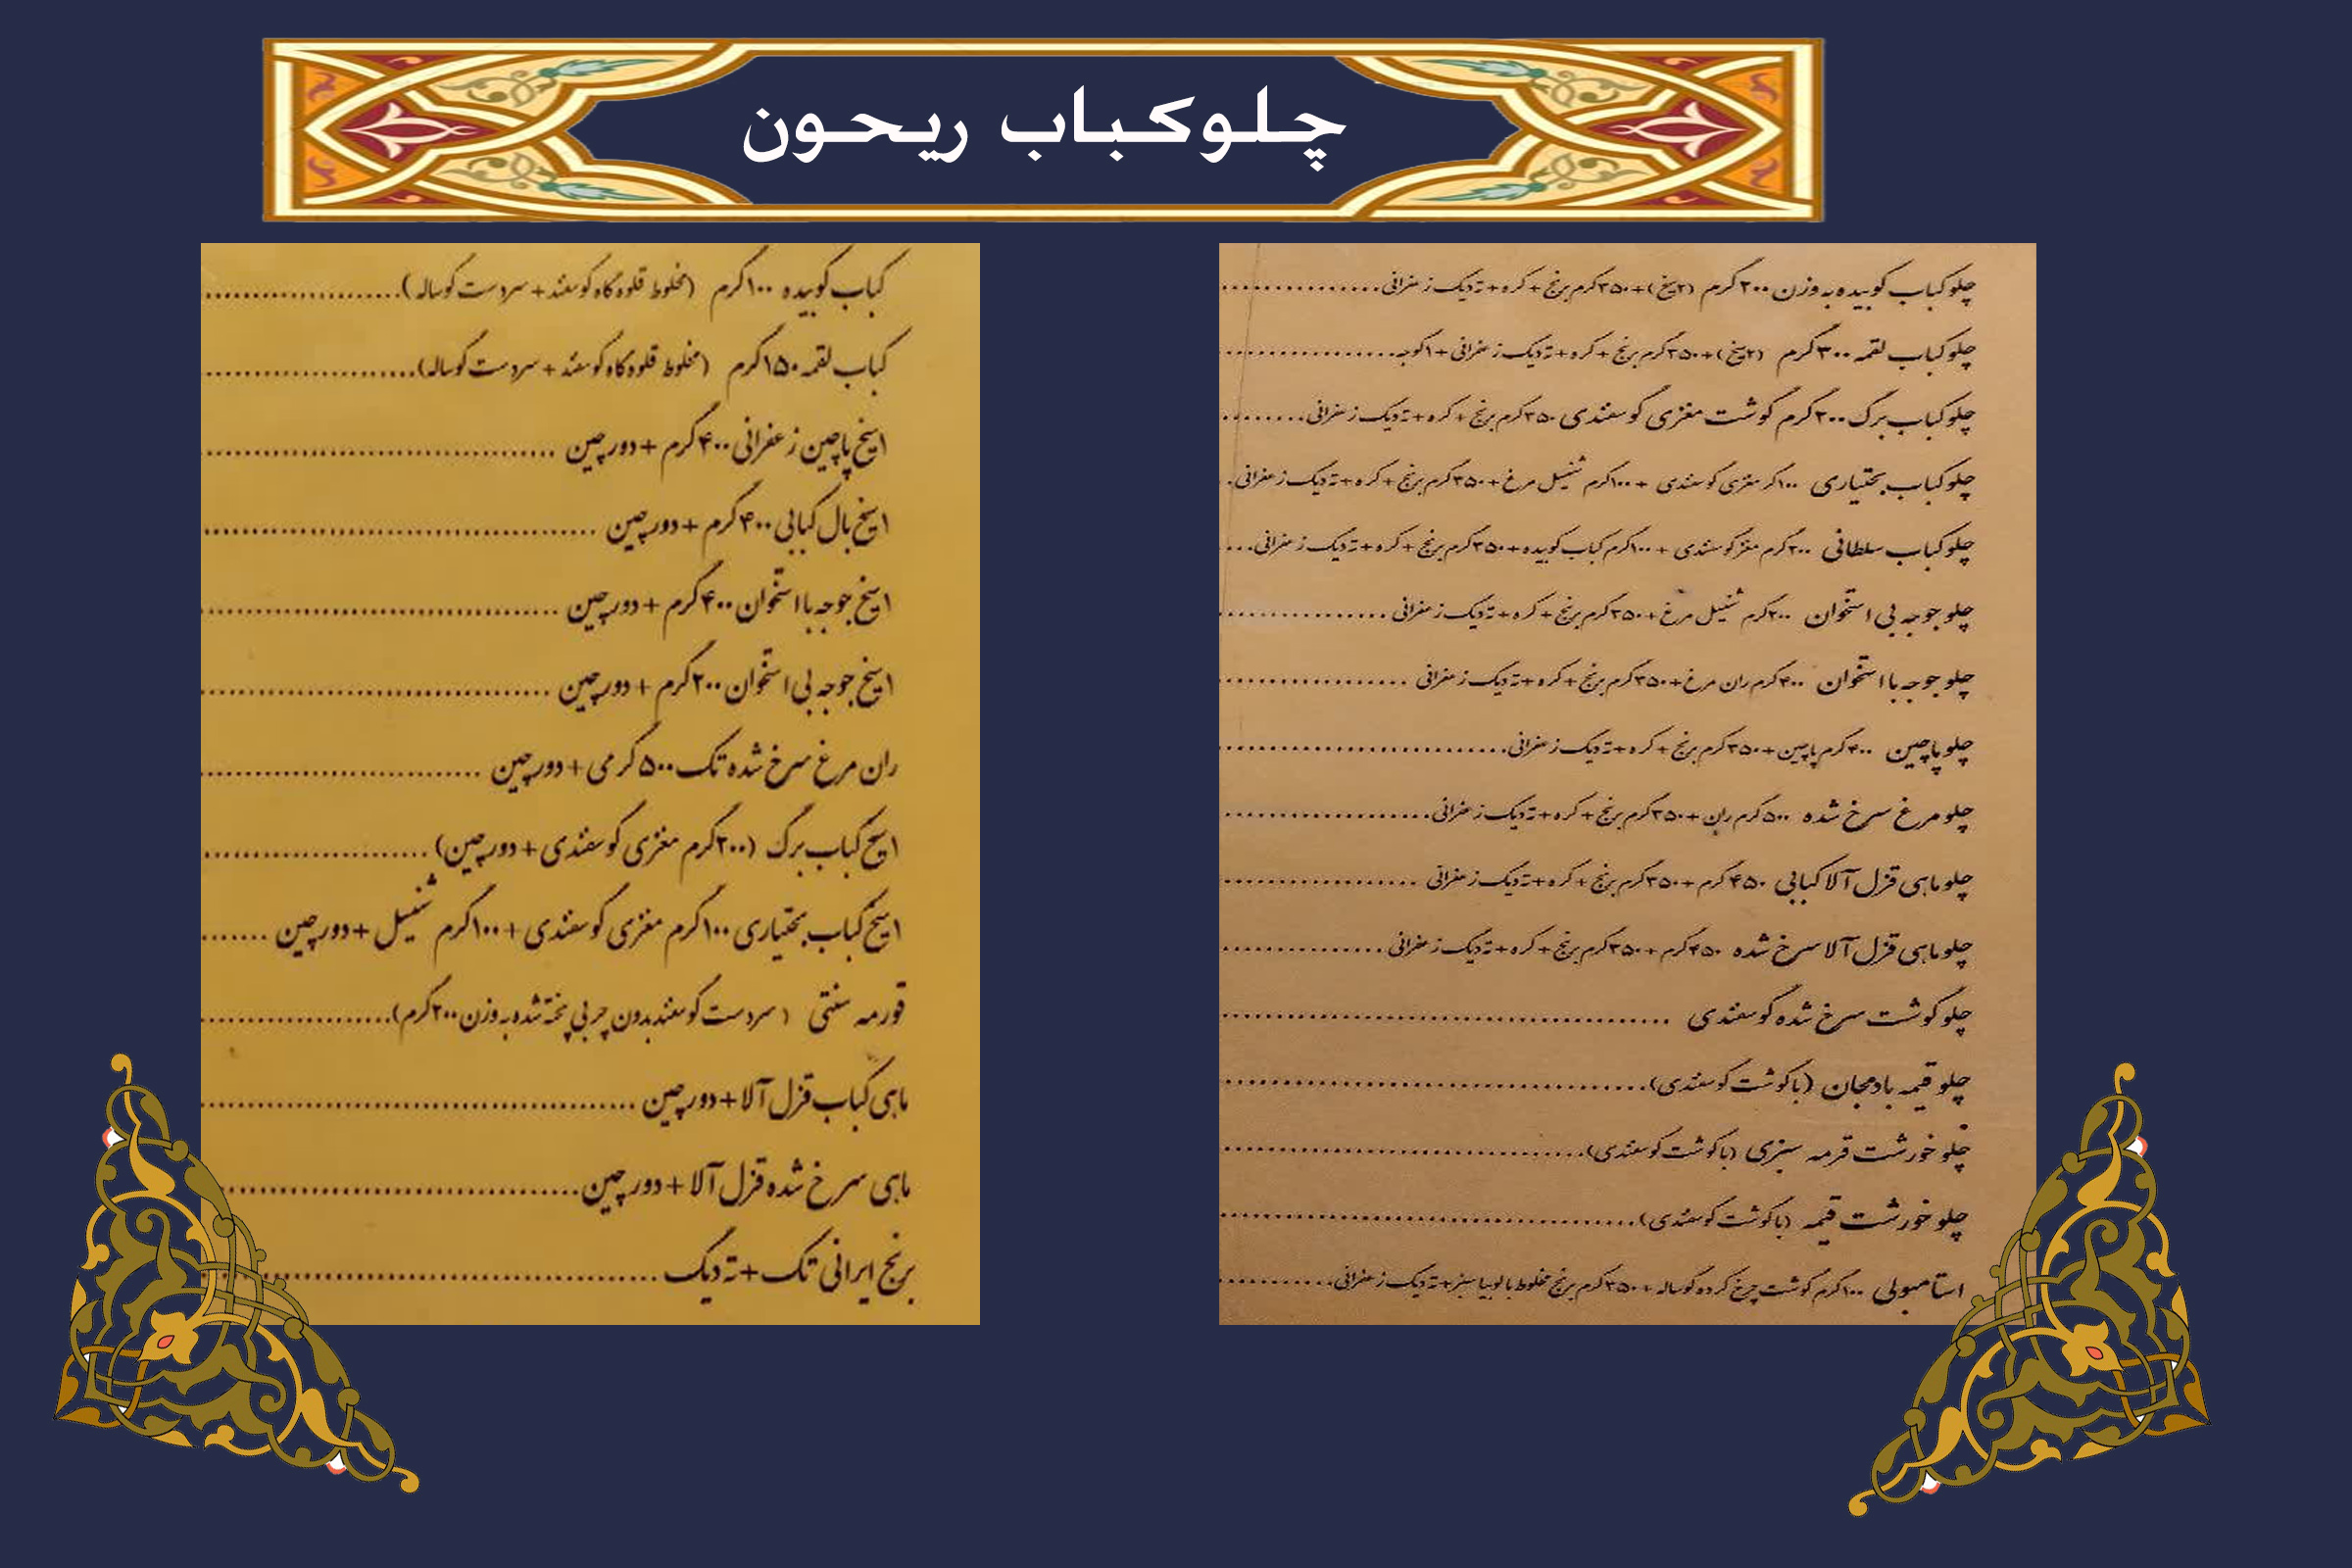 چلوکباب ریحون
چلوکباب کوبیده به وزن ۲۰۰ گرم (۲سیخ)+۳۵۰گرم برنج+کره+ته دیگ زعفرانی
چلوکباب لقمه ۳۰۰ گرم (۲سیخ)+۳۵۰گرم برنج+کره+ته دیگ زعفرانی+۱گوجه
چلوکباب برگ ۲۰۰ گرم گوشت مغزی گوسفندی ۳۵۰گرم برنج+کره+ته دیگ زعفرانی
چلوکباب بختیاری ۱۰۰گرم مغزی گوسفندی +۱۰۰گرم شنیسل مرغ+۳۵۰گرم برنج+کره+ته دیگ زعفرانی
چلوکباب سلطانی ۲۰۰گرم مغز گوسفندی +۱۰۰گرم کباب کوبیده+۳۵۰گرم برنج+کره+ته دیگ زعفرانی
چلو جوجه بی استخوان ۲۰۰گرم شنیسل مرغ+۳۵۰گرم برنج+کره+ته دیگ زعفرانی
چلو جوجه با استخوان ۴۰۰گرم ران مرغ+۳۵۰گرم برنج+کره+ته دیگ زعفرانی
چلو پاچین ۴۰۰گرم پاچین+۳۵۰گرم برنج+کره+ته دیگ زعفرانی
چلو مرغ سرخ شده ۵۰۰گرم ران+۳۵۰گرم برنج+کره+ته دیگ زعفرانی
چلو ماهی قزل آلا کبابی ۴۵۰گرم+۳۵۰گرم برنج+کره+ته دیگ زعفرانی
چلو ماهی قزل آلا سرخ شده ۴۵۰گرم+۳۵۰گرم برنج+کره+ته دیگ زعفرانی
چلو گوشت سرخ شده گوسفندی
چلو قیمه بادمجان (با گوشت گوسفندی)
چلو خورشت قرمه سبزی (با گوشت گوسفندی)
چلو خورشت قیمه (با گوشت گوسفندی)
استامبولی ۱۰۰گرم گوشت چرخ کرده گوساله+۳۵۰گرم برنج مخلوط با لوبیا سبز+ته دیگ زعفرانی
کباب کوبیده ۱۰۰گرم (مخلوط قلوه گاه گوسفند+سردست گوساله)
کباب لقمه ۱۵۰گرم (مخلوط قلوه گاه گوسفند+سردست گوساله)
۱سیخ پاچین زعفرانی ۴۰۰گرم+دورچین
۱سیخ بال کبابی ۴۰۰گرم+دورچین
۱سیخ جوجه با استخوان ۴۰۰گرم+دورچین
۱سیخ جوجه بی استخوان ۲۰۰گرم+دورچین
ران مرغ سرخ شده تک ۵۰۰گرمی+دورچین
۱سیخ کباب برگ (۲۰۰گرم مغزی گوسفندی+دورچین)
۱سیخ کباب بختیاری ۱۰۰گرم مغزی گوسفندی+۱۰۰گرم شنیسل+دورچین
قورمه سنتی (سردست گوسفند بدون چربی پخته شده به وزن ۲۰۰گرم)
ماهی کباب قزل آلا+دورچین
ماهی سرخ شده قزل آلا+دورچین
برنج ایرانی تک+ته دیگ